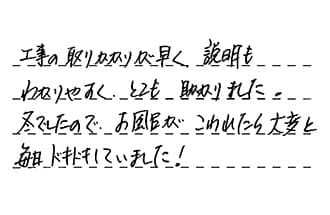 工事の取りかかりが早く、説明も
わかりやすく、とても助かりました。
冬でしたので、お風呂がこわれたら大変と
毎日ドキドキしていました!